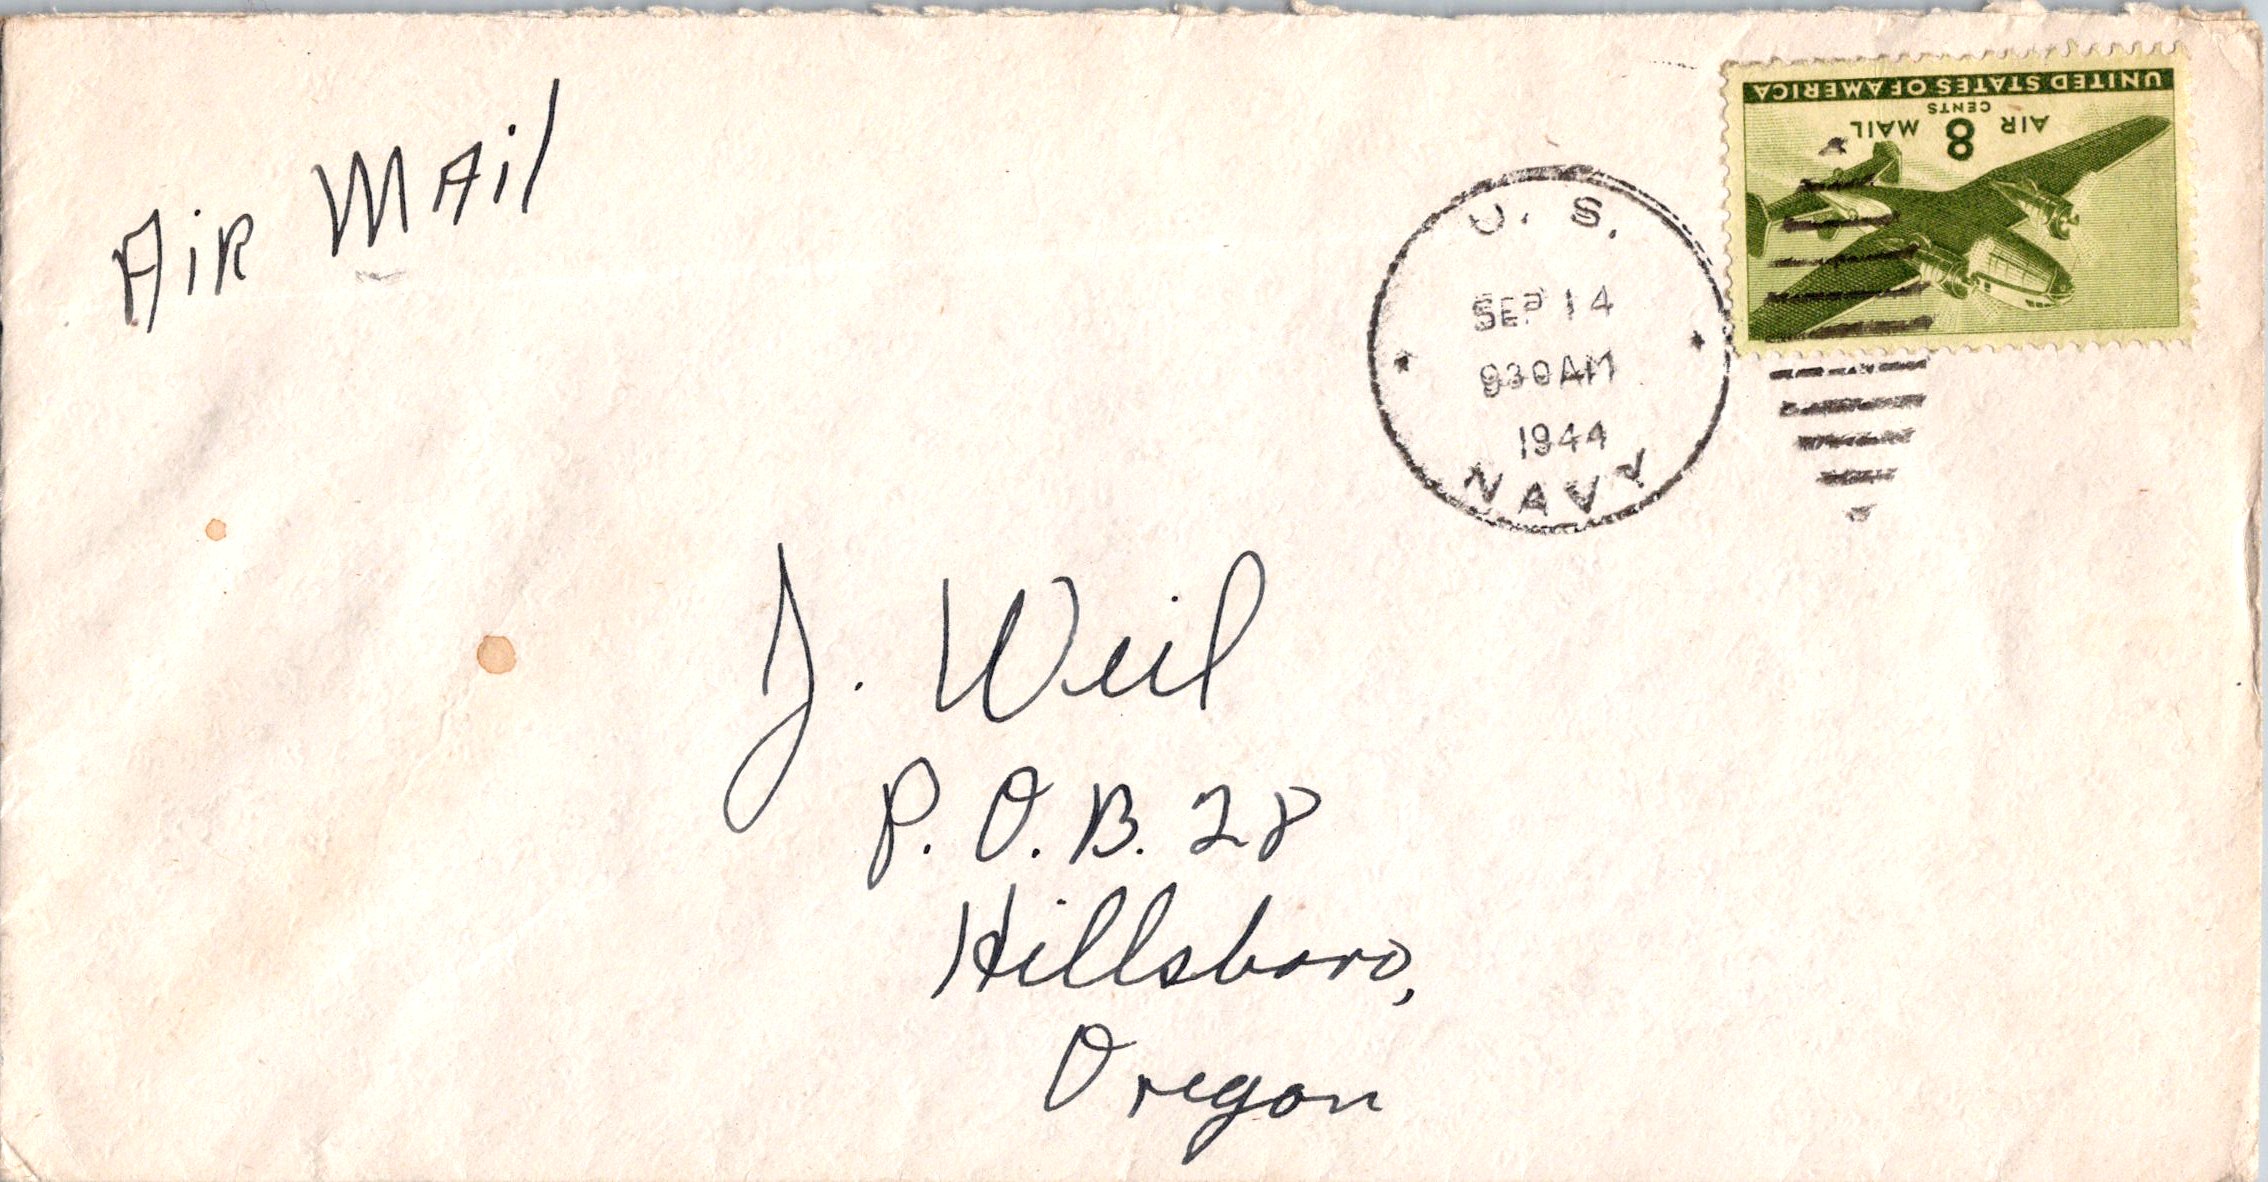 Air Mail
UNITED STATES OF AMERICA
CENTS
AIR 8 MAIL
U. S.
SEP 14
930AM
1944
NAVY
J. Weil
P. O. B. 28
Hillsboro,
Oregon